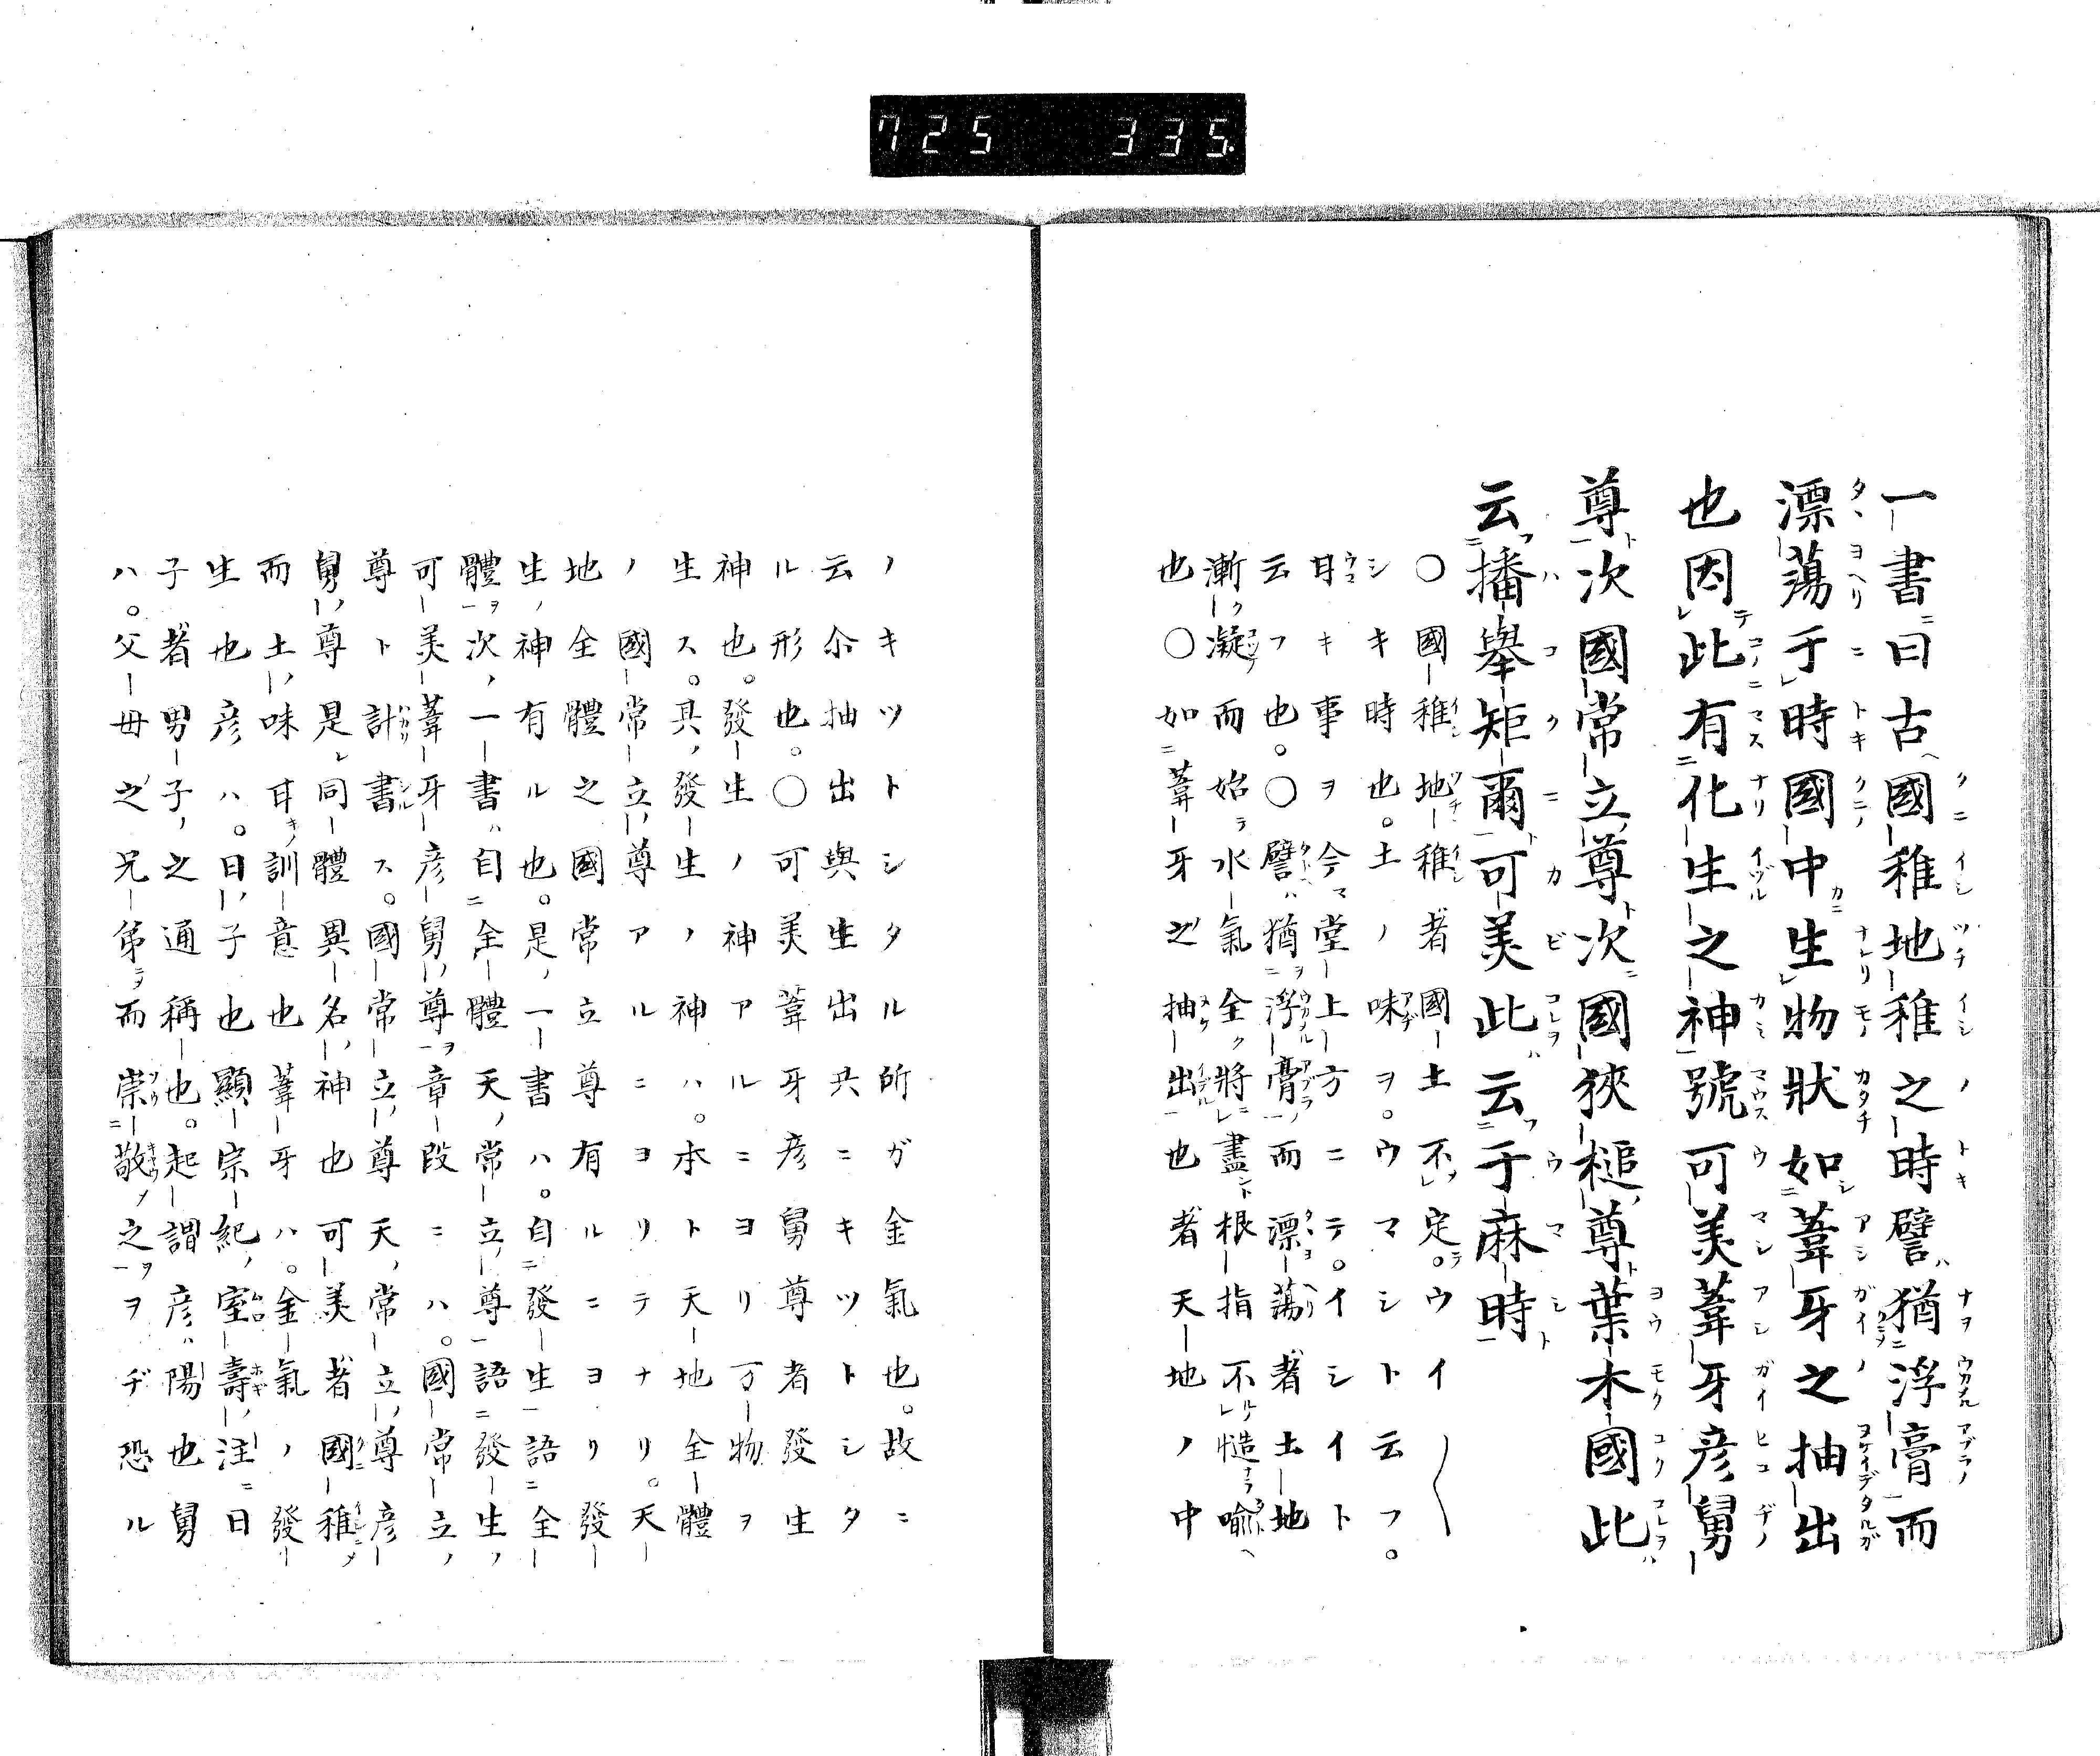 725 335.
一書曰古國稚地稚之時譬猶浮膏而
漂蕩于時國中生物狀如葦牙之抽出
也因此有化生之神號可美葦牙彦舅
尊次國常立尊次國狹槌尊葉木國此
云播擧矩爾可美此云于麻時
○國稚地稚者國土不定。ウイ〱
シキ時也。土ノ味ヲ。ウマシト云フ。
甘キ事ヲ今堂上方ニテ。イシイト
云フ也。○譬猶浮膏而漂蕩者土地
漸凝而始水氣全將盡根指不慥喩
也○如葦牙之抽出也者天地ノ中
ノキツトシタル所ガ金氣也。故ニ
云尒抽出與生出共ニキツトシタ
ル形也。○可美葦牙彦舅尊者發生
神也。發生ノ神アルニヨリ万物ヲ
生ス。具發生ノ神ハ。本ト天地全體
ノ國常立尊アルニヨリテナリ。天
地全體之國常立尊有ルニヨリ發
生神有ル也。是一書ハ。自發生語全
體次一書自全體天常立尊語發生
可美葦牙彦舅尊章段ニハ。國常立
尊ト計書ス。國常立尊天常立尊彦
舅尊是同體異名神也可美者國稚
而土味甘訓意也葦牙ハ。金氣ノ發
生也彦ハ。日子也顯宗紀室壽注曰
子者男子之通稱也。起謂彦陽也舅
ハ。父母之兄弟而崇敬之ヲヂ恐ル